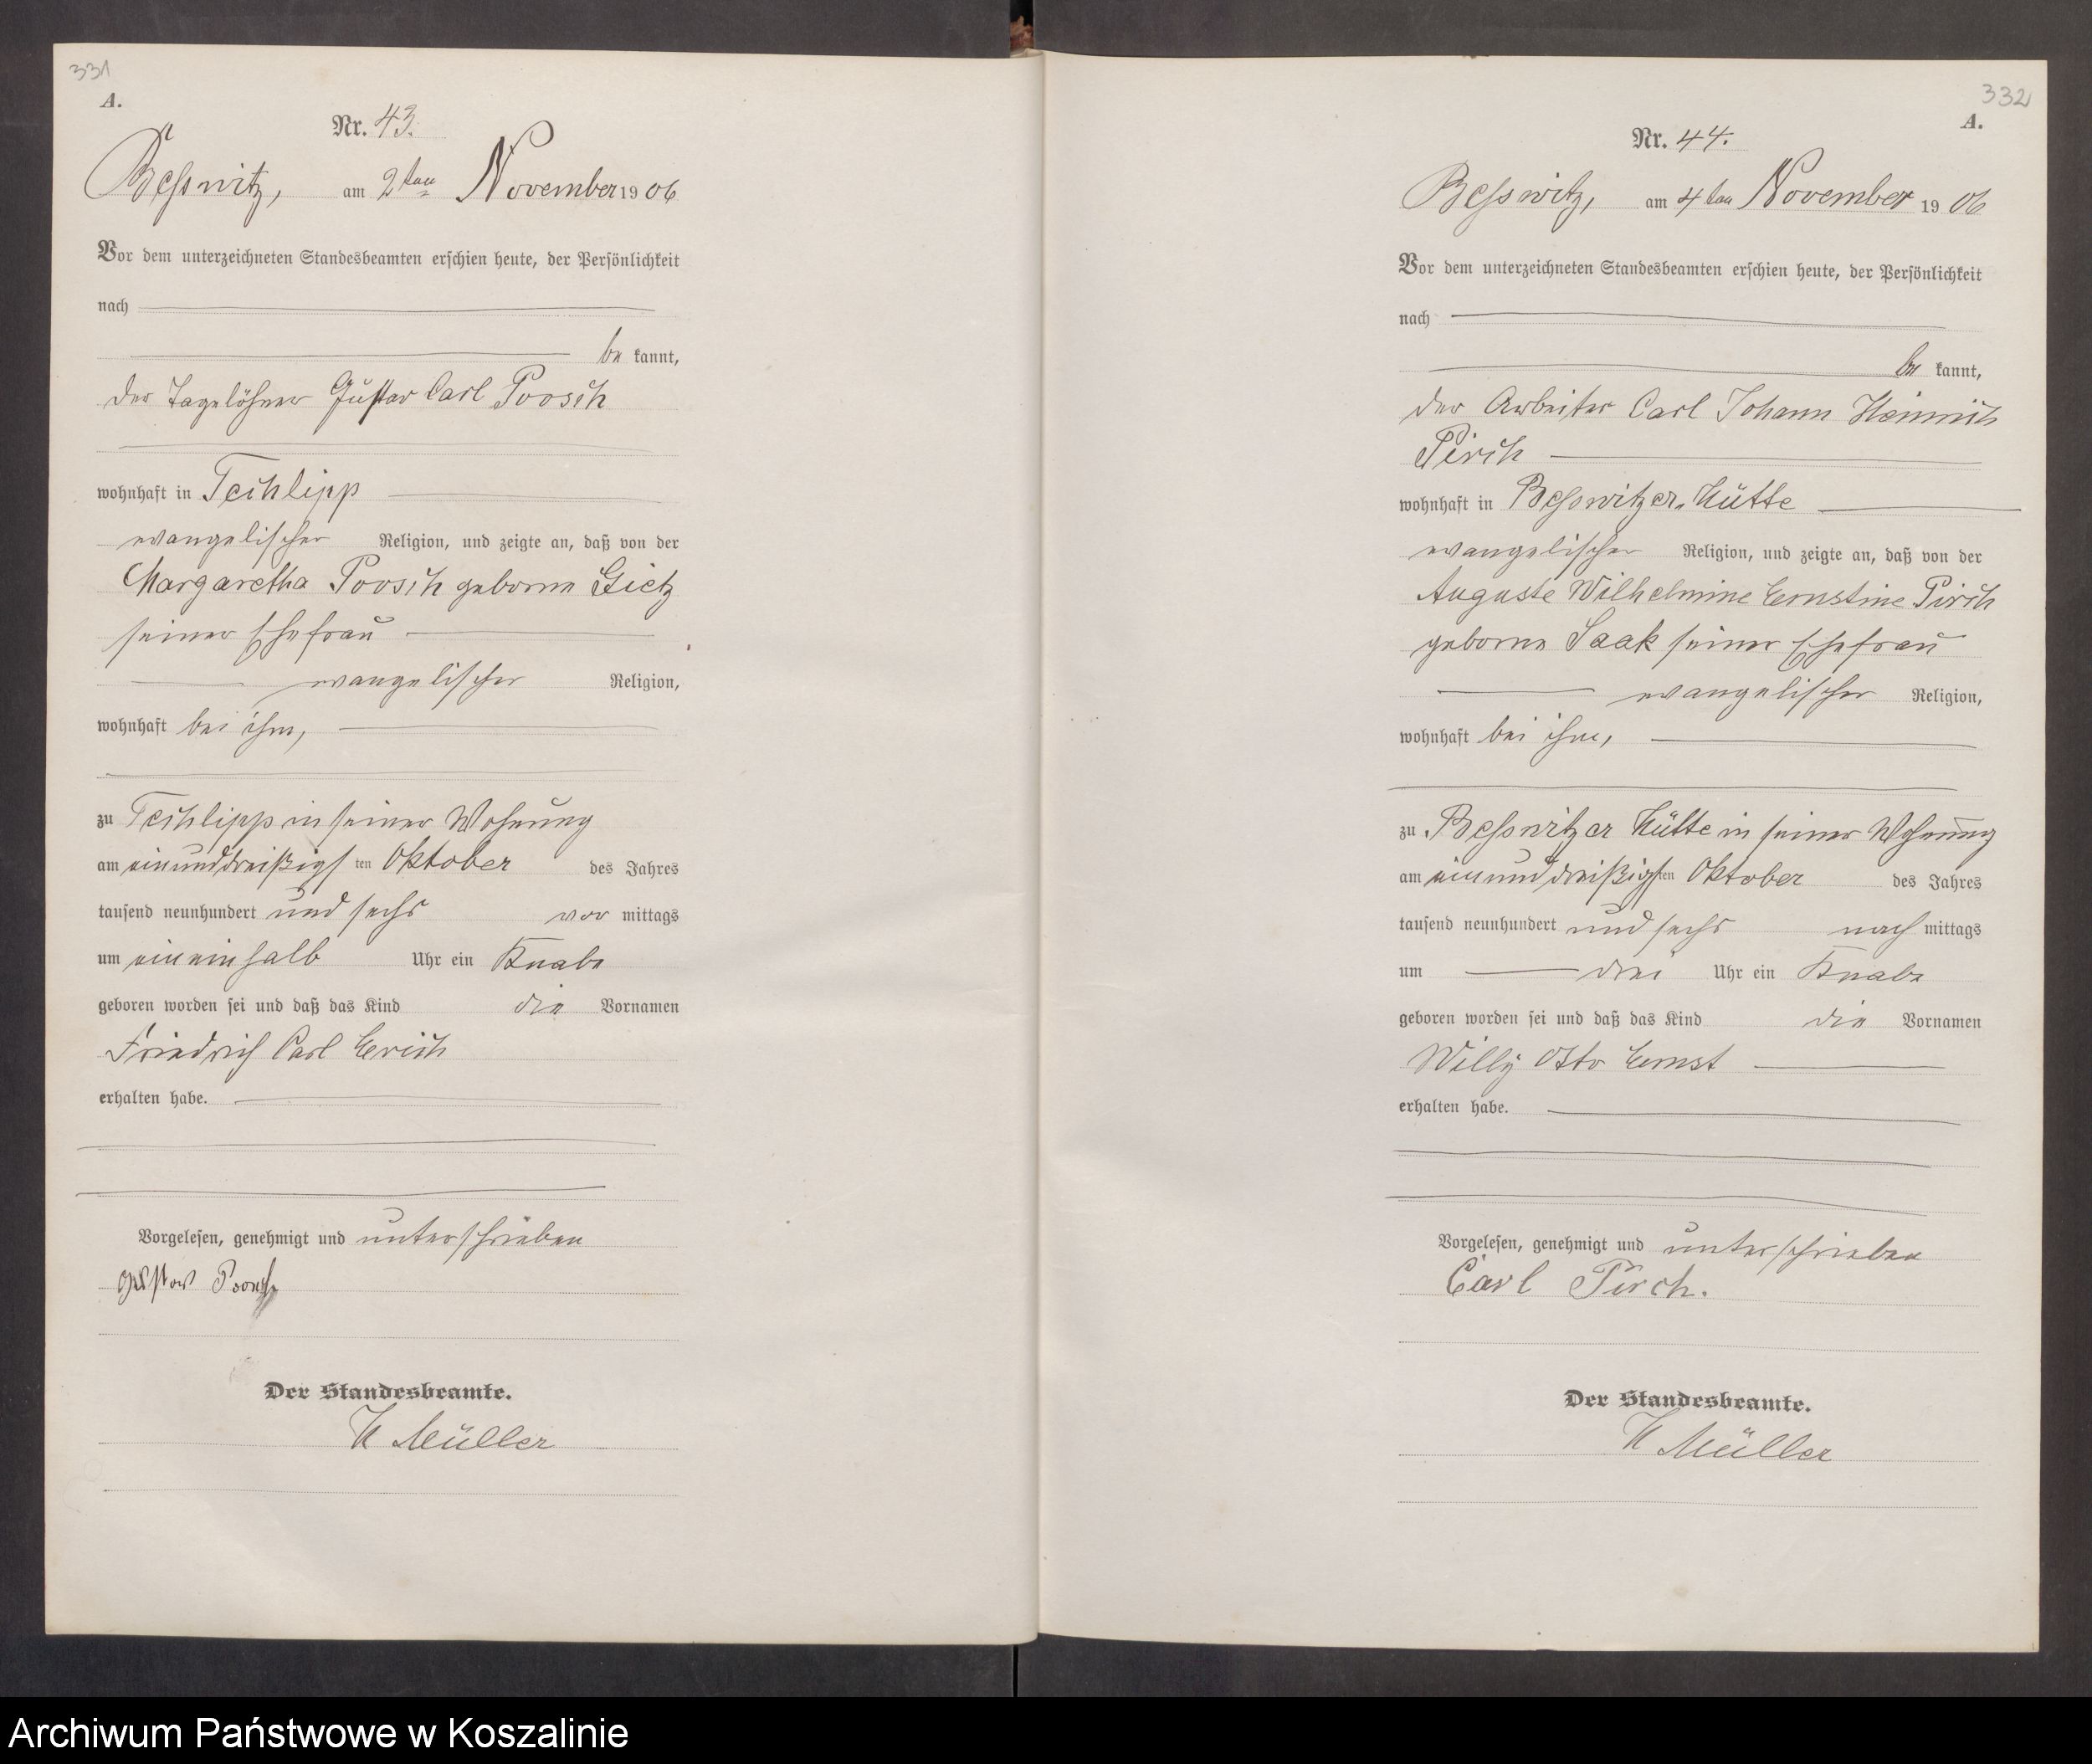 331
A.
Nr. 43.
Beßwitz, am 2ten November 1906
Vor dem unterzeichneten Standesbeamten erschien heute, der Persönlichkeit
nach
be kannt,
der Tagelöhner Gustav Carl Poosch
wohnhaft in Techlipp
evangelischer Religion, und zeigte an, daß von der
Margaretha Poosch geborne Gietz
seiner Ehefrau
evangelischer Religion,
wohnhaft bei ihm,
zu Techlipp in seiner Wohnung
am einunddreißigsten Oktober des Jahres
tausend neunhundert und sechs vor mittags
um ein einhalb Uhr ein Knabe
geboren worden sei und daß das Kind die Vornamen
Friedrich Carl Erich
erhalten habe.
Vorgelesen, genehmigt und unterschrieben
Gustav Poosch
Der Standesbeamte.
Müller
332
A.
Nr. 44.
Beßwitz, am 4ten November 1906
Vor dem unterzeichneten Standesbeamten erschien heute, der Persönlichkeit
nach
be kannt,
der Arbeiter Carl Johann Heinrich
Pirch
wohnhaft in Beßwitzer-Hütte
evangelischer Religion, und zeigte an, daß von der
Auguste Wilhelmine Ernstine Pirch
geborne Saak seiner Ehefrau
evangelischer Religion,
wohnhaft bei ihm,
zu Beßwitzer Hütte in seiner Wohnung
am einunddreißigsten Oktober des Jahres
tausend neunhundert und sechs nach mittags
um drei Uhr ein Knabe
geboren worden sei und daß das Kind die Vornamen
Willy Otto Ernst
erhalten habe.
Vorgelesen, genehmigt und unterschrieben
Carl Pirch.
Der Standesbeamte.
Müller
Archiwum Państwowe w Koszalinie